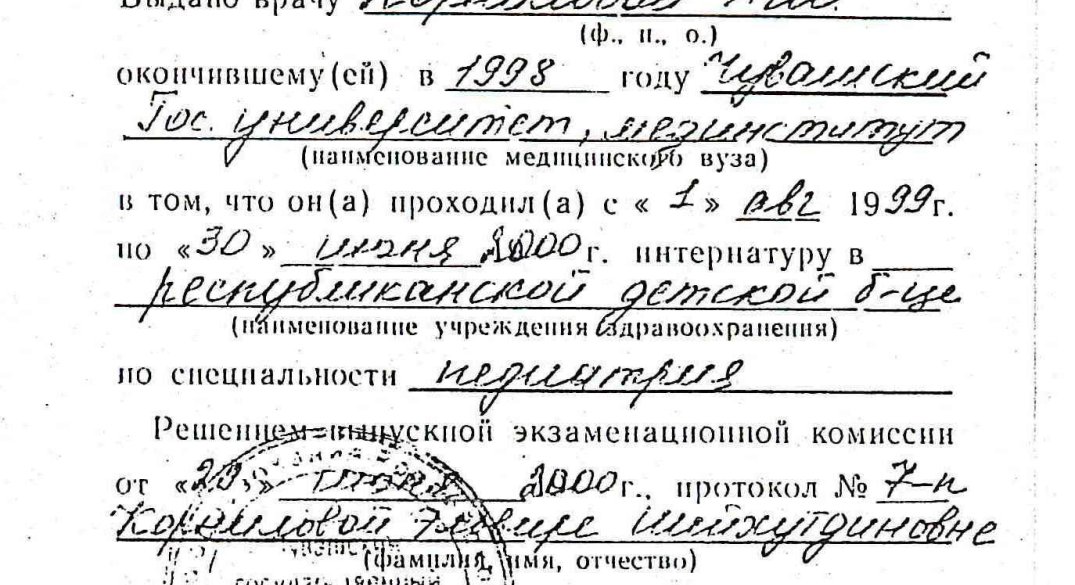 Выдано врачу Корниловой Э.Ш.
(ф., и., о.)
окончившему(ей) в 1998 году Чувашский
Гос. университет, мединститут
(наименование медицинского вуза)
в том, что он(а) проходил(а) с « 1 » авг 1999г.
по «30 » июня 2000г. интернатуру в
республиканской детской б-це
(наименование учреждения здравоохранения)
по специальности педиатрия
Решением выпускной экзаменационной комиссии
от «29» июня 2000г., протокол № 7-п
Корниловой Эльвире Шейхутдиновне
(фамилия, имя, отчество)